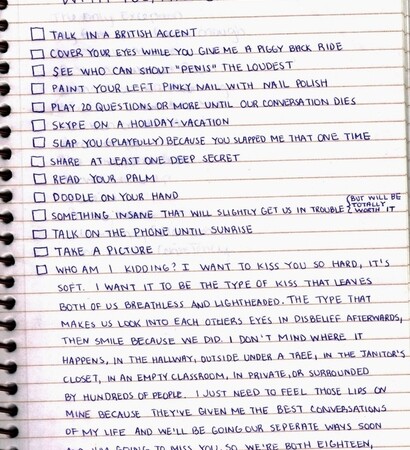 TALK IN A BRITISH ACCENT
COVER YOUR EYES WHILE YOU GIVE ME A PIGGY BACK RIDE
SEE WHO CAN SHOUT "PENIS" THE LOUDEST
PAINT YOUR LEFT PINKY NAIL WITH NAIL POLISH
PLAY 20 QUESTIONS OR MORE UNTIL OUR CONVERSATION DIES
SKYPE ON A HOLIDAY-VACATION
SLAP YOU (PLAYFULLY) BECAUSE YOU SLAPPED ME THAT ONE TIME
SHARE AT LEAST ONE DEEP SECRET
READ YOUR PALM
DOODLE ON YOUR HAND
SOMETHING INSANE THAT WILL SLIGHTLY GET US IN TROUBLE (BUT WILL BE TOTALLY WORTH IT
TALK ON THE PHONE UNTIL SUNRISE
TAKE A PICTURE
WHO AM I KIDDING? I WANT TO KISS YOU SO HARD, IT'S
SOFT. I WANT IT TO BE THE TYPE OF KISS THAT LEAVES
BOTH OF US BREATHLESS AND LIGHTHEADED. THE TYPE THAT
MAKES US LOOK INTO EACH OTHERS EYES IN DISBELIEF AFTERWARDS,
THEN SMILE BECAUSE WE DID. I DON'T MIND WHERE IT
HAPPENS, IN THE HALLWAY, OUTSIDE UNDER A TREE, IN THE JANITOR'S
CLOSET, IN AN EMPTY CLASSROOM, IN PRIVATE, OR SURROUNDED
BY HUNDREDS OF PEOPLE. I JUST NEED TO FEEL THOSE LIPS ON
MINE BECAUSE THEY'VE GIVEN ME THE BEST CONVERSATIONS
OF MY LIFE AND WE'LL BE GOING OUR SEPERATE WAYS SOON
GOING TO MISS YOU. SO WE'RE BOTH EIGHTEEN,